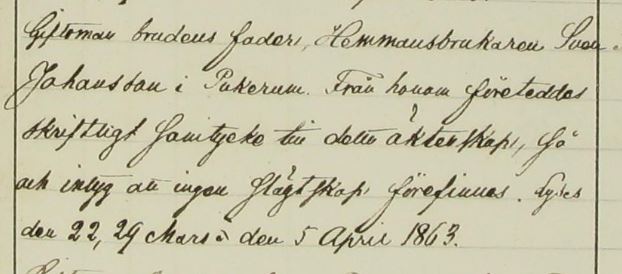 Giftoman brudens fader, Hemmansbrukaren Sven
Johansson i Pukerum. Från honom företeddes
skriftligt samtycke till detta äktenskap, så
och intyg att ingen slägtskap förefinnes. Lyses
den 22, 29 Mars & den 5 April 1863.